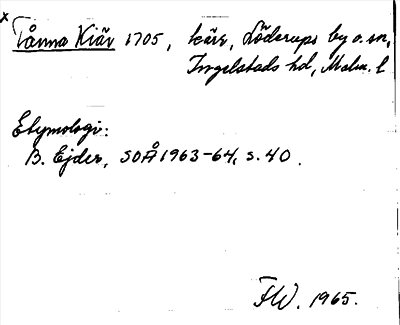 x
Tånna Kiär 1705, kärr, Löderups by o. sn,
Ingelstads hd, Malm. l
Etymologi:
B. Ejder, SOÅ 1963-64, s. 40.
FW. 1965.